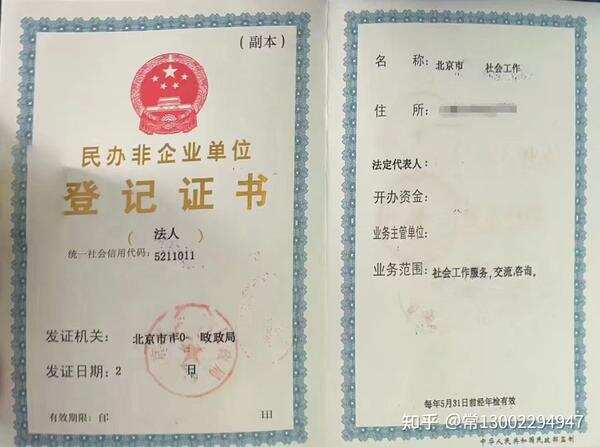 (副本)
民办非企业单位
登记证书
(法人)
统一社会信用代码: 5211011
发证机关: 北京市 政局
发证日期: 2 日
有效期限: 自
名 称: 北京市 社会工作
住 所:
法定代表人:
开办资金:
业务主管单位:
业务范围: 社会工作服务,交流,咨询。
每年5月31日前经年检有效
中华人民共和国民政部监制
知乎 @常13002294947